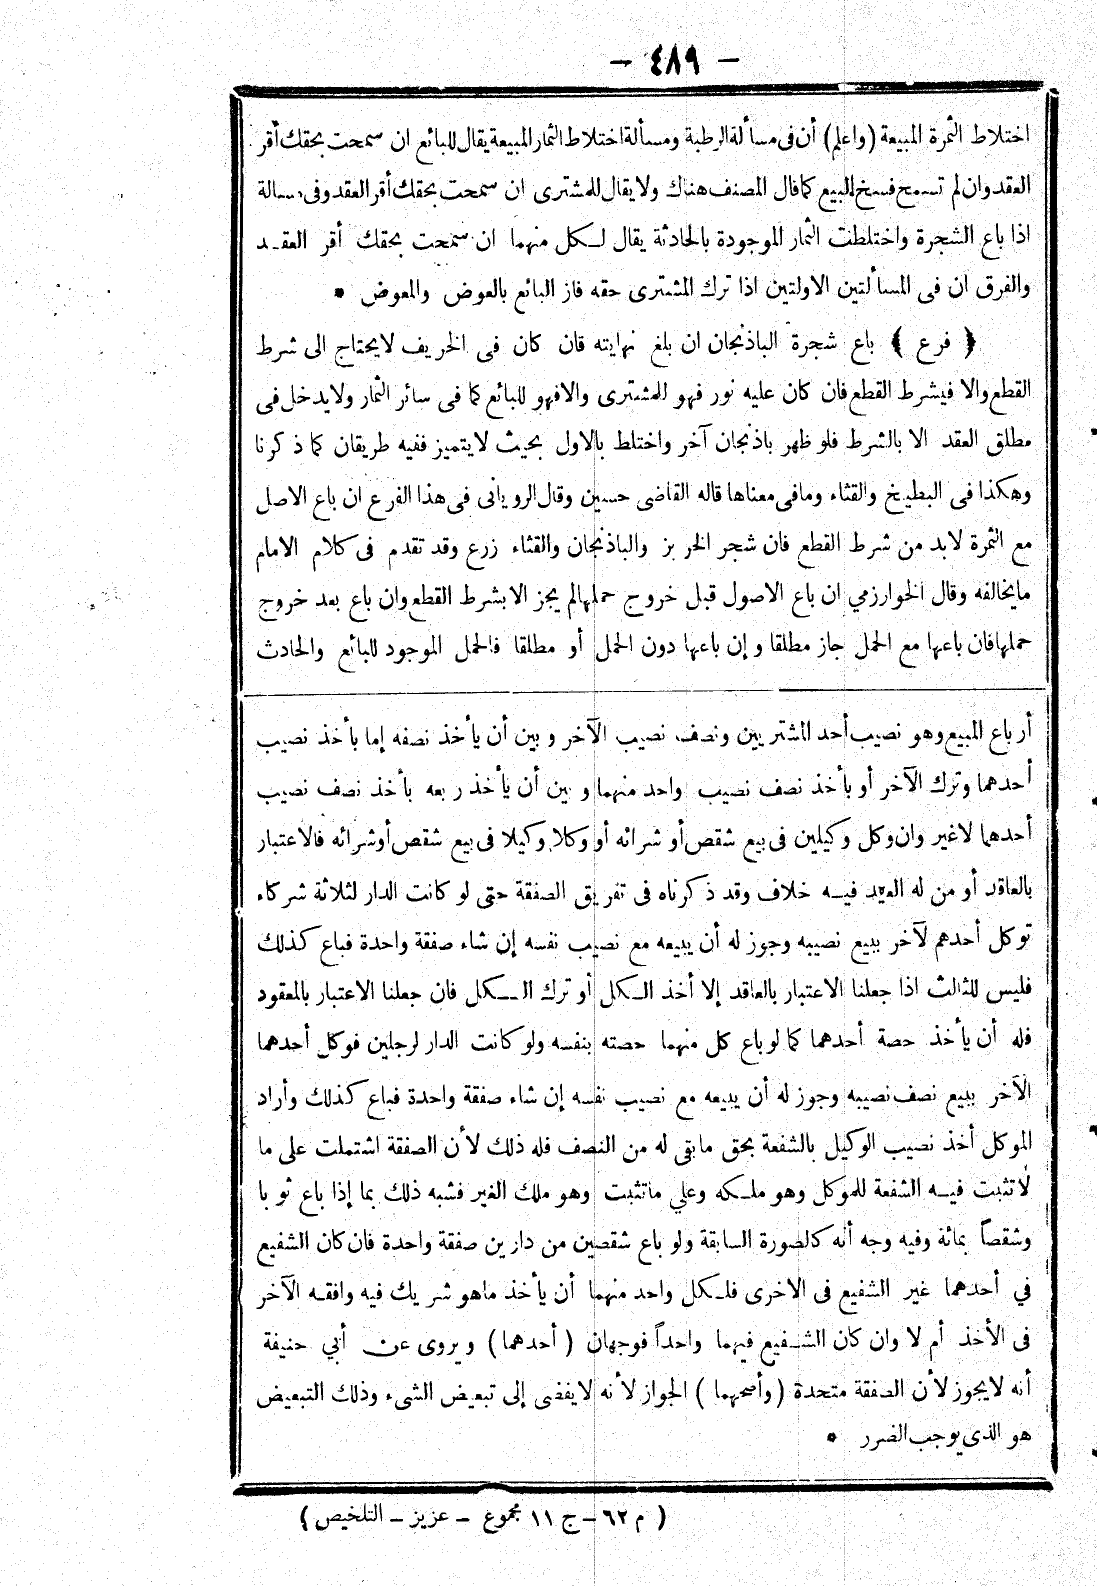 – ٤٨٩ –
اختلاط الثمرة المبيعة (واعلم) أن فى مسألة الرطبة ومسألة اختلاط الثمار المبيعة يقال للبائع ان سمحت بحقك أقر
العقد وان لم تسمح فسخ البيع كما قال المصنف هناك ولا يقال للمشترى ان سمحت بحقك أقر العقد وفى مسالة
اذا باع الشجرة واختلطت الثمار الموجودة بالحادثة يقال لكل منهما ان سمحت بحقك أقر العقد
والفرق ان فى المسألتين الاولتين اذا ترك المشترى حقه فاز البائع بالعوض والمعوض *
﴿ فرع ﴾ باع شجرة الباذنجان ان بلغ نهايته فان كان فى الخريف لا يحتاج الى شرط
القطع والا فيشرط القطع فان كان عليه نور فهو للمشترى والا فهو للبائع كما فى سائر الثمار ولا يدخل فى
مطلق العقد الا بالشرط فلو ظهر باذنجان آخر واختلط بالاول بحيث لا يتميز ففيه طريقان كما ذكرنا
وهكذا فى البطيخ والقثاء ومافى معناها قاله القاضى حسين وقال الرويانى فى هذا الفرع ان باع الاصل
مع الثمرة لا بد من شرط القطع فان شجر الخربز والباذنجان والقثاء زرع وقد تقدم فى كلام الامام
ما يخالفه وقال الخوارزمي ان باع الاصول قبل خروج حملها لم يجز الا بشرط القطع وان باع بعد خروج
حملها فان باعها مع الحمل جاز مطلقا وإن باعها دون الحمل أو مطلقا فالحمل الموجود للبائع والحادث
أرباع المبيع وهو نصيب أحد المشتريين ونصف نصيب الآخر وبين أن يأخذ نصفه إما بأخذ نصيب
أحدهما وترك الآخر أو بأخذ نصف نصيب واحد منهما وبين أن يأخذ ربعه بأخذ نصف نصيب
أحدهما لا غير وان وكل وكيلين فى بيع شقص أو شرائه أو وكلا وكيلا فى بيع شقص أو شرائه فالاعتبار
بالعاقد أو من له العقد فيه خلاف وقد ذكرناه فى تفريق الصفقة حتى لو كانت الدار لثلاثة شركاء
توكل أحدهم لآخر ببيع نصيبه وجوز له أن يبيعه مع نصيب نفسه إن شاء صفقة واحدة فباع كذلك
فليس للثالث اذا جعلنا الاعتبار بالعاقد إلا أخذ الكل أو ترك الكل فان جعلنا الاعتبار بالمعقود
فله أن يأخذ حصة أحدهما كما لو باع كل منهما حصته بنفسه ولو كانت الدار لرجلين فوكل أحدهما
الآخر ببيع نصف نصيبه وجوز له أن يبيعه مع نصيب نفسه إن شاء صفقة واحدة فباع كذلك وأراد
الموكل أخذ نصيب الوكيل بالشفعة بحق مابقى له من النصف فله ذلك لأن الصفقة اشتملت على ما
لا تثبت فيه الشفعة للموكل وهو ملكه وعلي ماتثبت وهو ملك الغير فشبه ذلك بما إذا باع ثوبا
وشقصاً بمائة وفيه وجه أنه كالصورة السابقة ولو باع شقصين من دارين صفقة واحدة فان كان الشفيع
في أحدهما غير الشفيع فى الاخرى فلكل واحد منهما أن يأخذ ماهو شريك فيه وافقه الآخر
فى الأخذ أم لا وان كان الشفيع فيهما واحداً فوجهان (أحدهما) ويروى عن أبي حنيفة
أنه لا يجوز لأن الصفقة متحدة (وأصحهما) الجواز لأنه لا يفضى إلى تبعيض الشىء وذلك التبعيض
هو الذى يوجب الضرر *
(م ٦٢ – ج ١١ مجموع – عزيز – التلخيص)